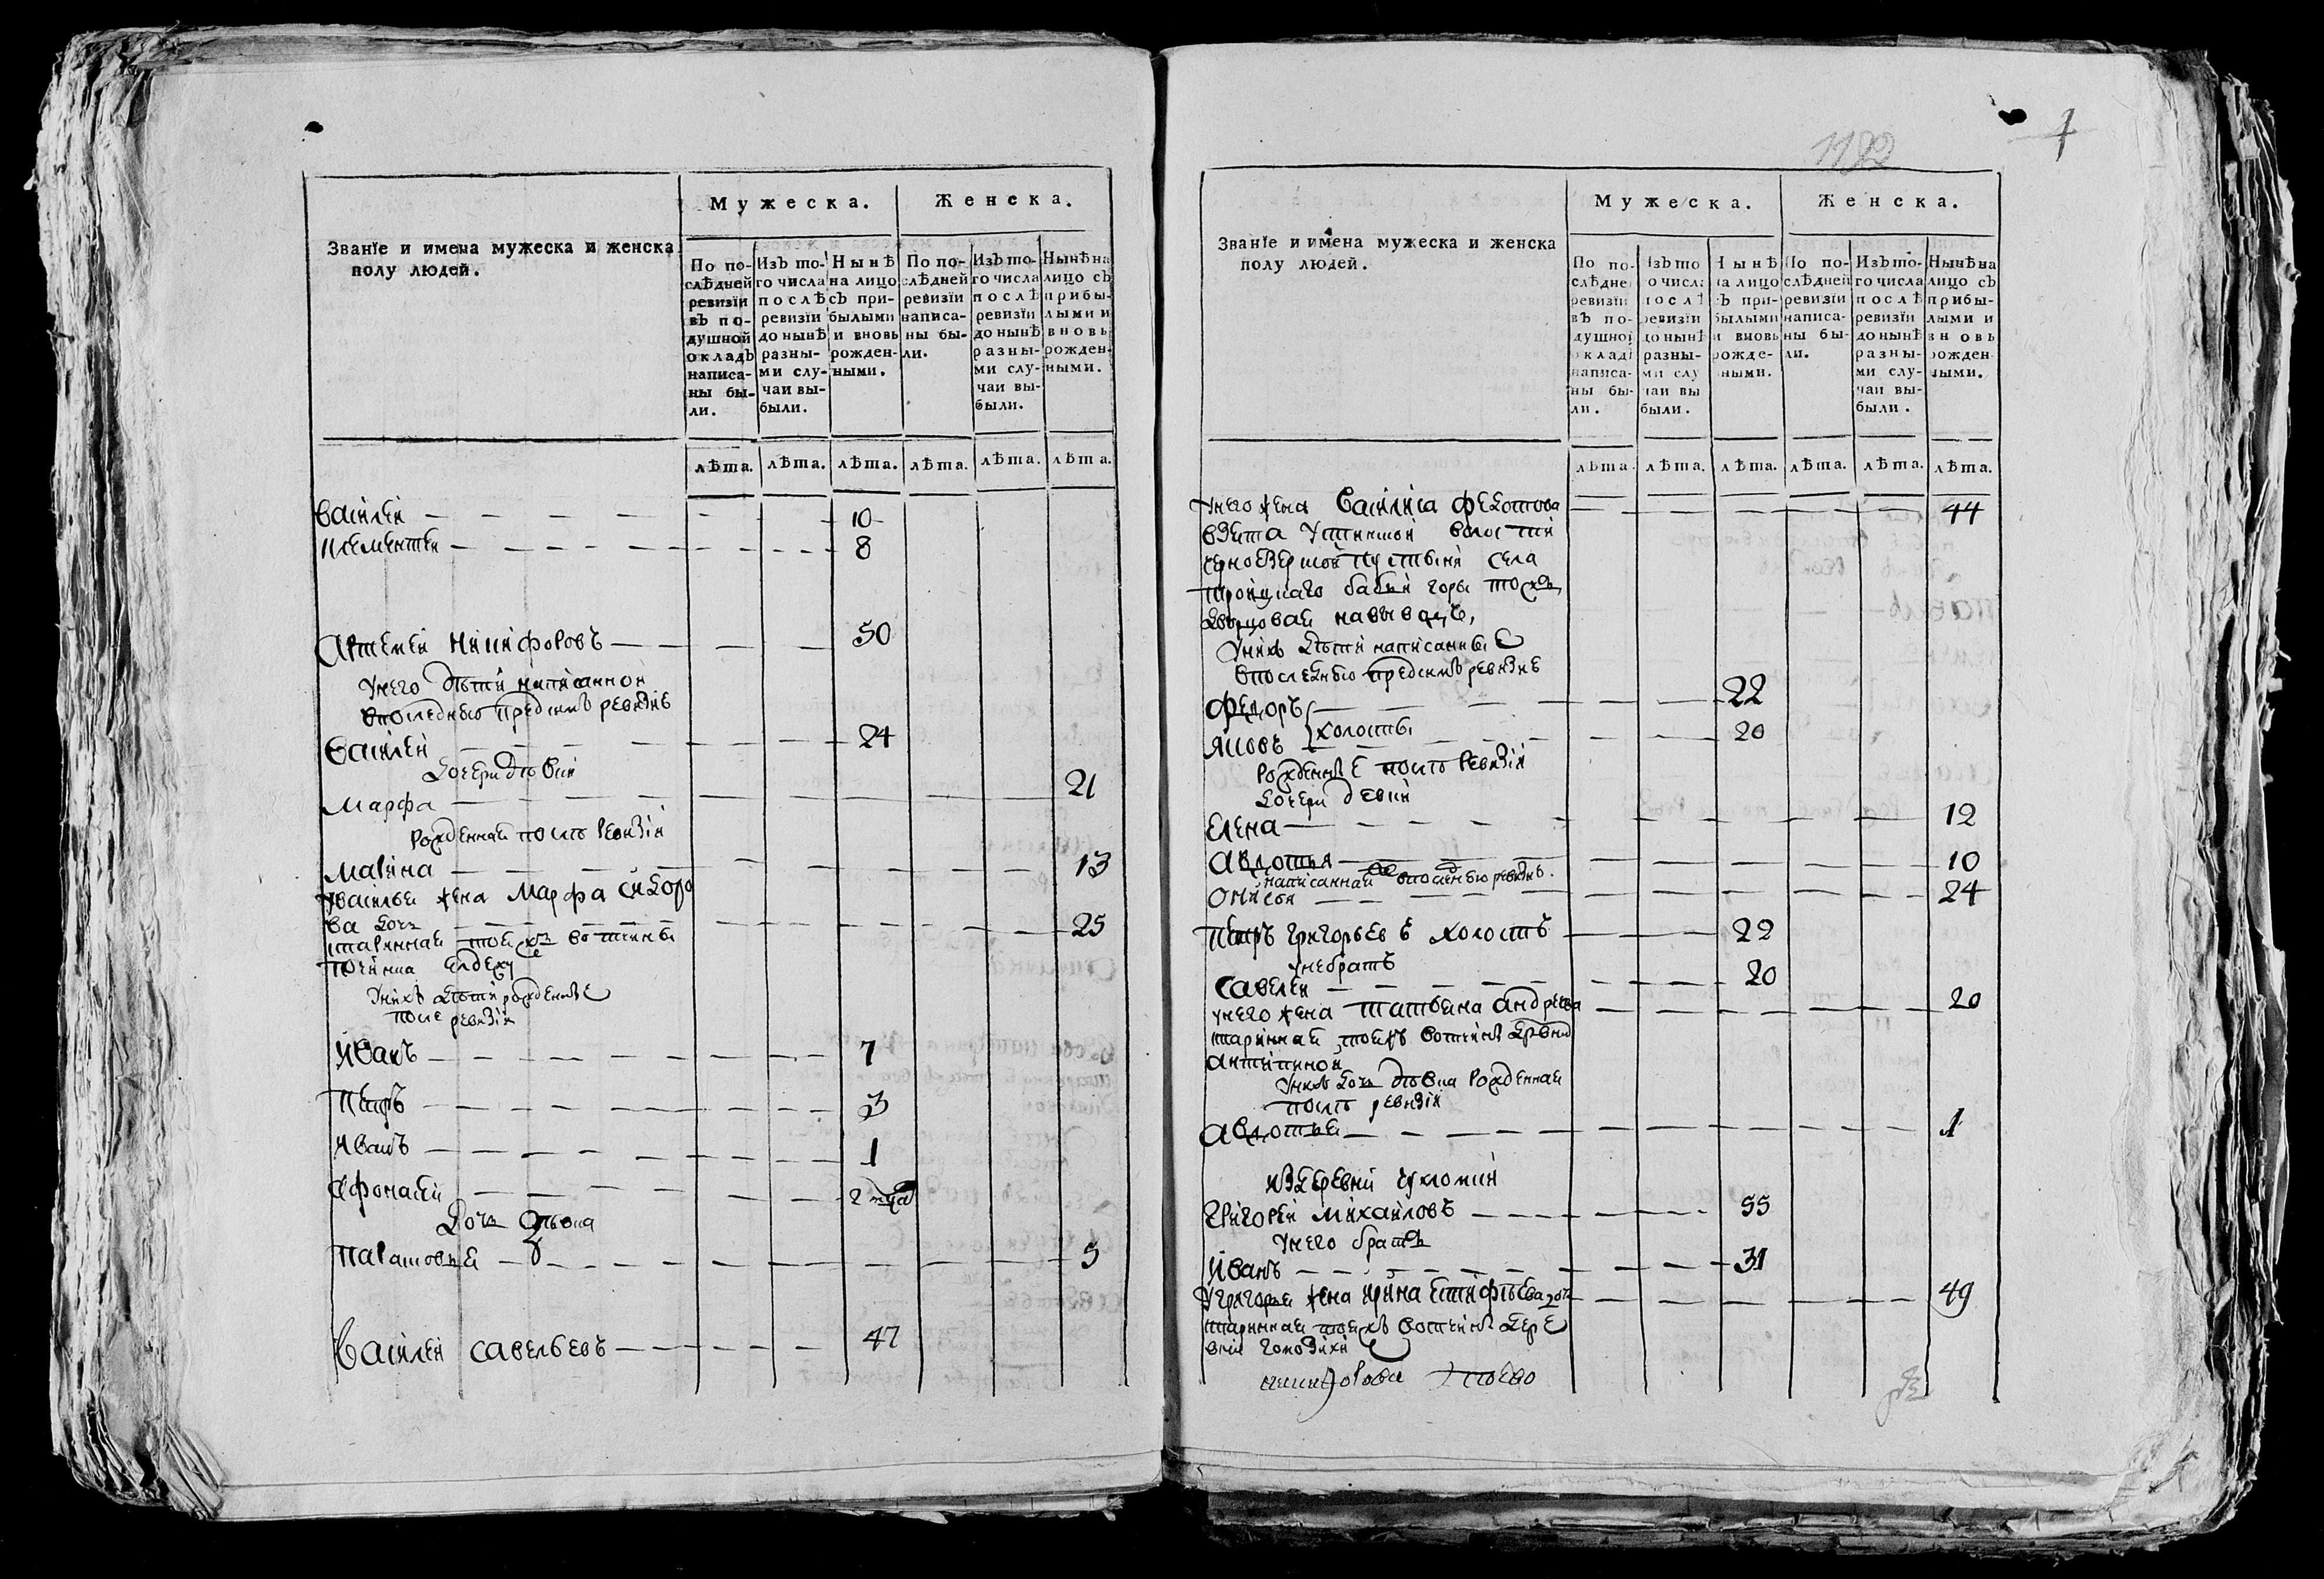 Мужеска.
Женска.
Званїе и имена мужеска и женска
полу людей.
По по-
слѣдней
ревизїи
въ по-
душной
окладъ
написа-
ны бы-
ли.
Изъ то-
го числа
послѣ
ревизїи
до нынѣ
разны-
ми слу-
чаи вы-
были.
Нынѣ
на лицо
съ при-
былыми
и вновь
рожден-
ными.
По по-
слѣдней
ревизїи
написа-
ны бы-
ли.
Изъ то-
го числа
послѣ
ревизїи
до нынѣ
разны-
ми слу-
чаи вы-
были.
Нынѣ на
лицо съ
прибы-
лыми и
вновь
рожден-
ными.
лѣта. лѣта. лѣта. лѣта. лѣта. лѣта.
Василей 10
Клементей 8
Артемей Никифоровъ 50
Унего дѣти написанной
впоследнью предсимъ ревизиѣ
Василей 24
дочери дѣвки
Марфа 21
рожденная послѣ ревизiи
Марина 13
Увасилья жена Марфа сидоро
ва дочь 25
старинная той жъ вотчины
починка
Унихъ дѣти рожденные
после ревизiи
Иванъ 7
Петръ 3
Иванъ 1
Афонасей 2 мца
Дочь дѣвка
Парасковья 5
Василей савельевъ 47
1182
1
Мужеска.
Женска.
Званїе и имена мужеска и женска
полу людей.
По по-
слѣдней
ревизїи
въ по-
душной
окладъ
написа-
ны бы-
ли.
Изъ то
го числа
послѣ
ревизїи
до нынѣ
разны-
ми слу
чаи вы
были.
Нынѣ
на лицо
съ при-
былыми
и вновь
рожде-
ными.
По по-
слѣдней
ревизїи
написа-
ны бы-
ли.
Изъ то-
го числа
послѣ
ревизїи
до нынѣ
разны-
ми слу-
чаи вы-
были.
Нынѣ на
лицо съ
прибы-
лыми и
вновь
рожден
ными.
лѣта. лѣта. лѣта. лѣта. лѣта. лѣта.
унего жена Василиса федотова 44
взята волости
пустыни села
троицкаго бабьи горы тожъ
Унихъ дѣти написанные
впоследнью предсимъ ревизиѣ
Федоръ 22
холосты
Яковъ 20
рожденные послѣ ревизiи
дочери девки
Елена 12
Авдотья 10
написанная впоследнью ревизiѣ.
Онисья 24
Петръ григорьевъ холостъ 22
унебратъ
Савелей 20
унего жена татьяна андреева 20
старинная тоежъ вотчинѣ дрѣвни
антипиной
Унихъ дочь дѣвка рожденная
послѣ ревизiи
Авдотья 1
издеревни чухломки
Григорей михайловъ 55
Унего братъ
Иванъ 31
Угригорья жена ирина 49
старинная тоежъ вотчинѣ дере
вни